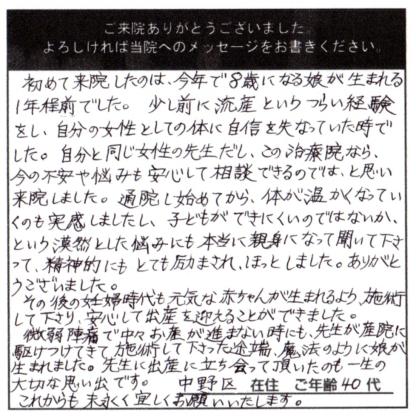 ご来院ありがとうございました。
よろしければ当院へのメッセージをお書きください。
初めて来院したのは、今年で8歳になる娘が生まれる
1年程前でした。少し前に流産というつらい経験
をし、自分の女性としての体に自信を失なっていた時で
した。自分と同じ女性の先生だし、この治療院なら、
今の不安や悩みも安心して相談できるのでは、と思い
来院しました。通院し始めてから、体が温かくなってい
くのも実感しましたし、子どもができにくいのではないか、
という漠然とした悩みにも本当に親身になって聞いて下さ
って、精神的にもとても励まされ、ほっとしました。ありがと
うございました。
その後の妊婦時代も元気な赤ちゃんが生まれるよう、施術
して下さり、安心して出産を迎えることができました。
微弱陣痛で中々お産が進まない時にも、先生が産院に
駆けつけてきて施術して下さった途端、魔法のように娘が
生まれました。先生に出産に立ち会って頂いたのも一生の
大切な思い出です。 中野区 在住 ご年齢40代
これからも末永く宜しくお願いいたします。